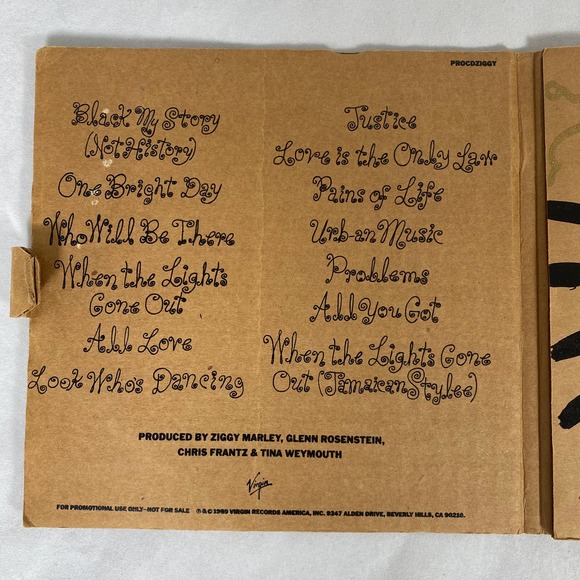 PROCDZIGGY
Black My Story
(Not History)
One Bright Day
Who Will Be There
When the Lights
Gone Out
All Love
Look Who's Dancing
Justice
Love is the Only Law
Pains of Life
Urb-an Music
Problems
All You Got
When the Lights Gone
Out (Jamaican Stylee)
PRODUCED BY ZIGGY MARLEY, GLENN ROSENSTEIN,
CHRIS FRANTZ & TINA WEYMOUTH
Virgin
FOR PROMOTIONAL USE ONLY–NOT FOR SALE ℗ & © 1989 VIRGIN RECORDS AMERICA, INC. 9247 ALDEN DRIVE, BEVERLY HILLS, CA 90210.